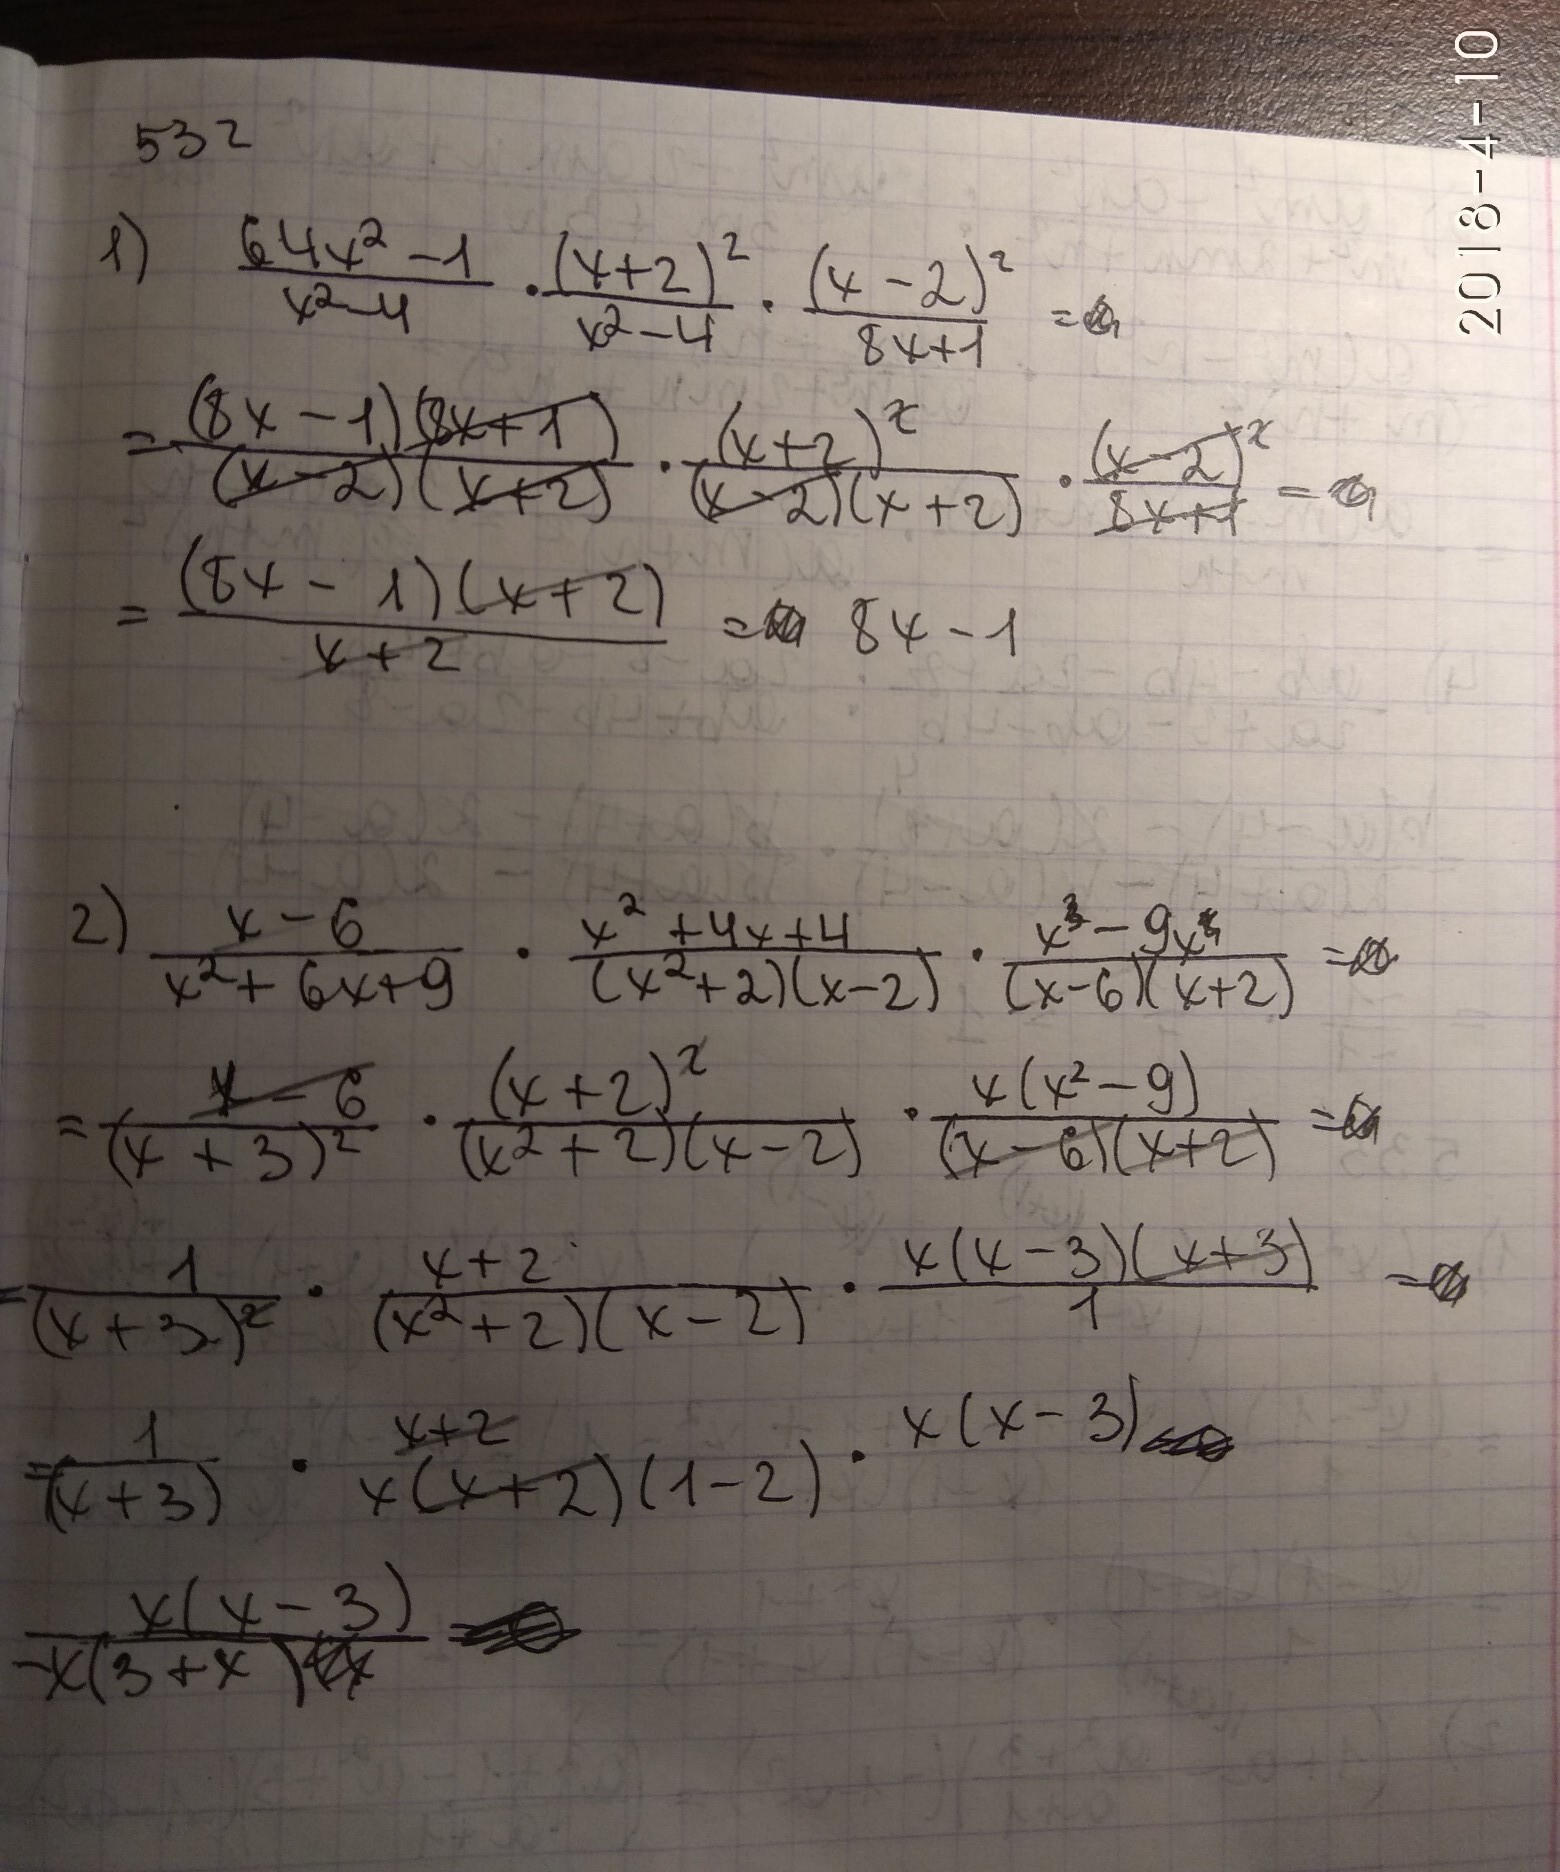 2018-4-10
532
1) \frac{64x^2-1}{x^2-4} \cdot \frac{(x+2)^2}{x^2-4} \cdot \frac{(x-2)^2}{8x+1} =
= \frac{(8x-1)(8x+1)}{(x-2)(x+2)} \cdot \frac{(x+2)^2}{(x-2)(x+2)} \cdot \frac{(x-2)^2}{8x+1} =
= \frac{(8x-1)(x+2)}{x+2} = 8x-1
2) \frac{x-6}{x^2+6x+9} \cdot \frac{x^2+4x+4}{(x^2+2)(x-2)} \cdot \frac{x^3-9x}{(x-6)(x+2)} =
= \frac{x-6}{(x+3)^2} \cdot \frac{(x+2)^2}{(x^2+2)(x-2)} \cdot \frac{x(x^2-9)}{(x-6)(x+2)} =
= \frac{1}{(x+3)^2} \cdot \frac{x+2}{(x^2+2)(x-2)} \cdot \frac{x(x-3)(x+3)}{1} =
= \frac{1}{(x+3)} \cdot \frac{x+2}{x(x+2)(1-2)} \cdot x(x-3)
\frac{x(x-3)}{-x(3+x)}